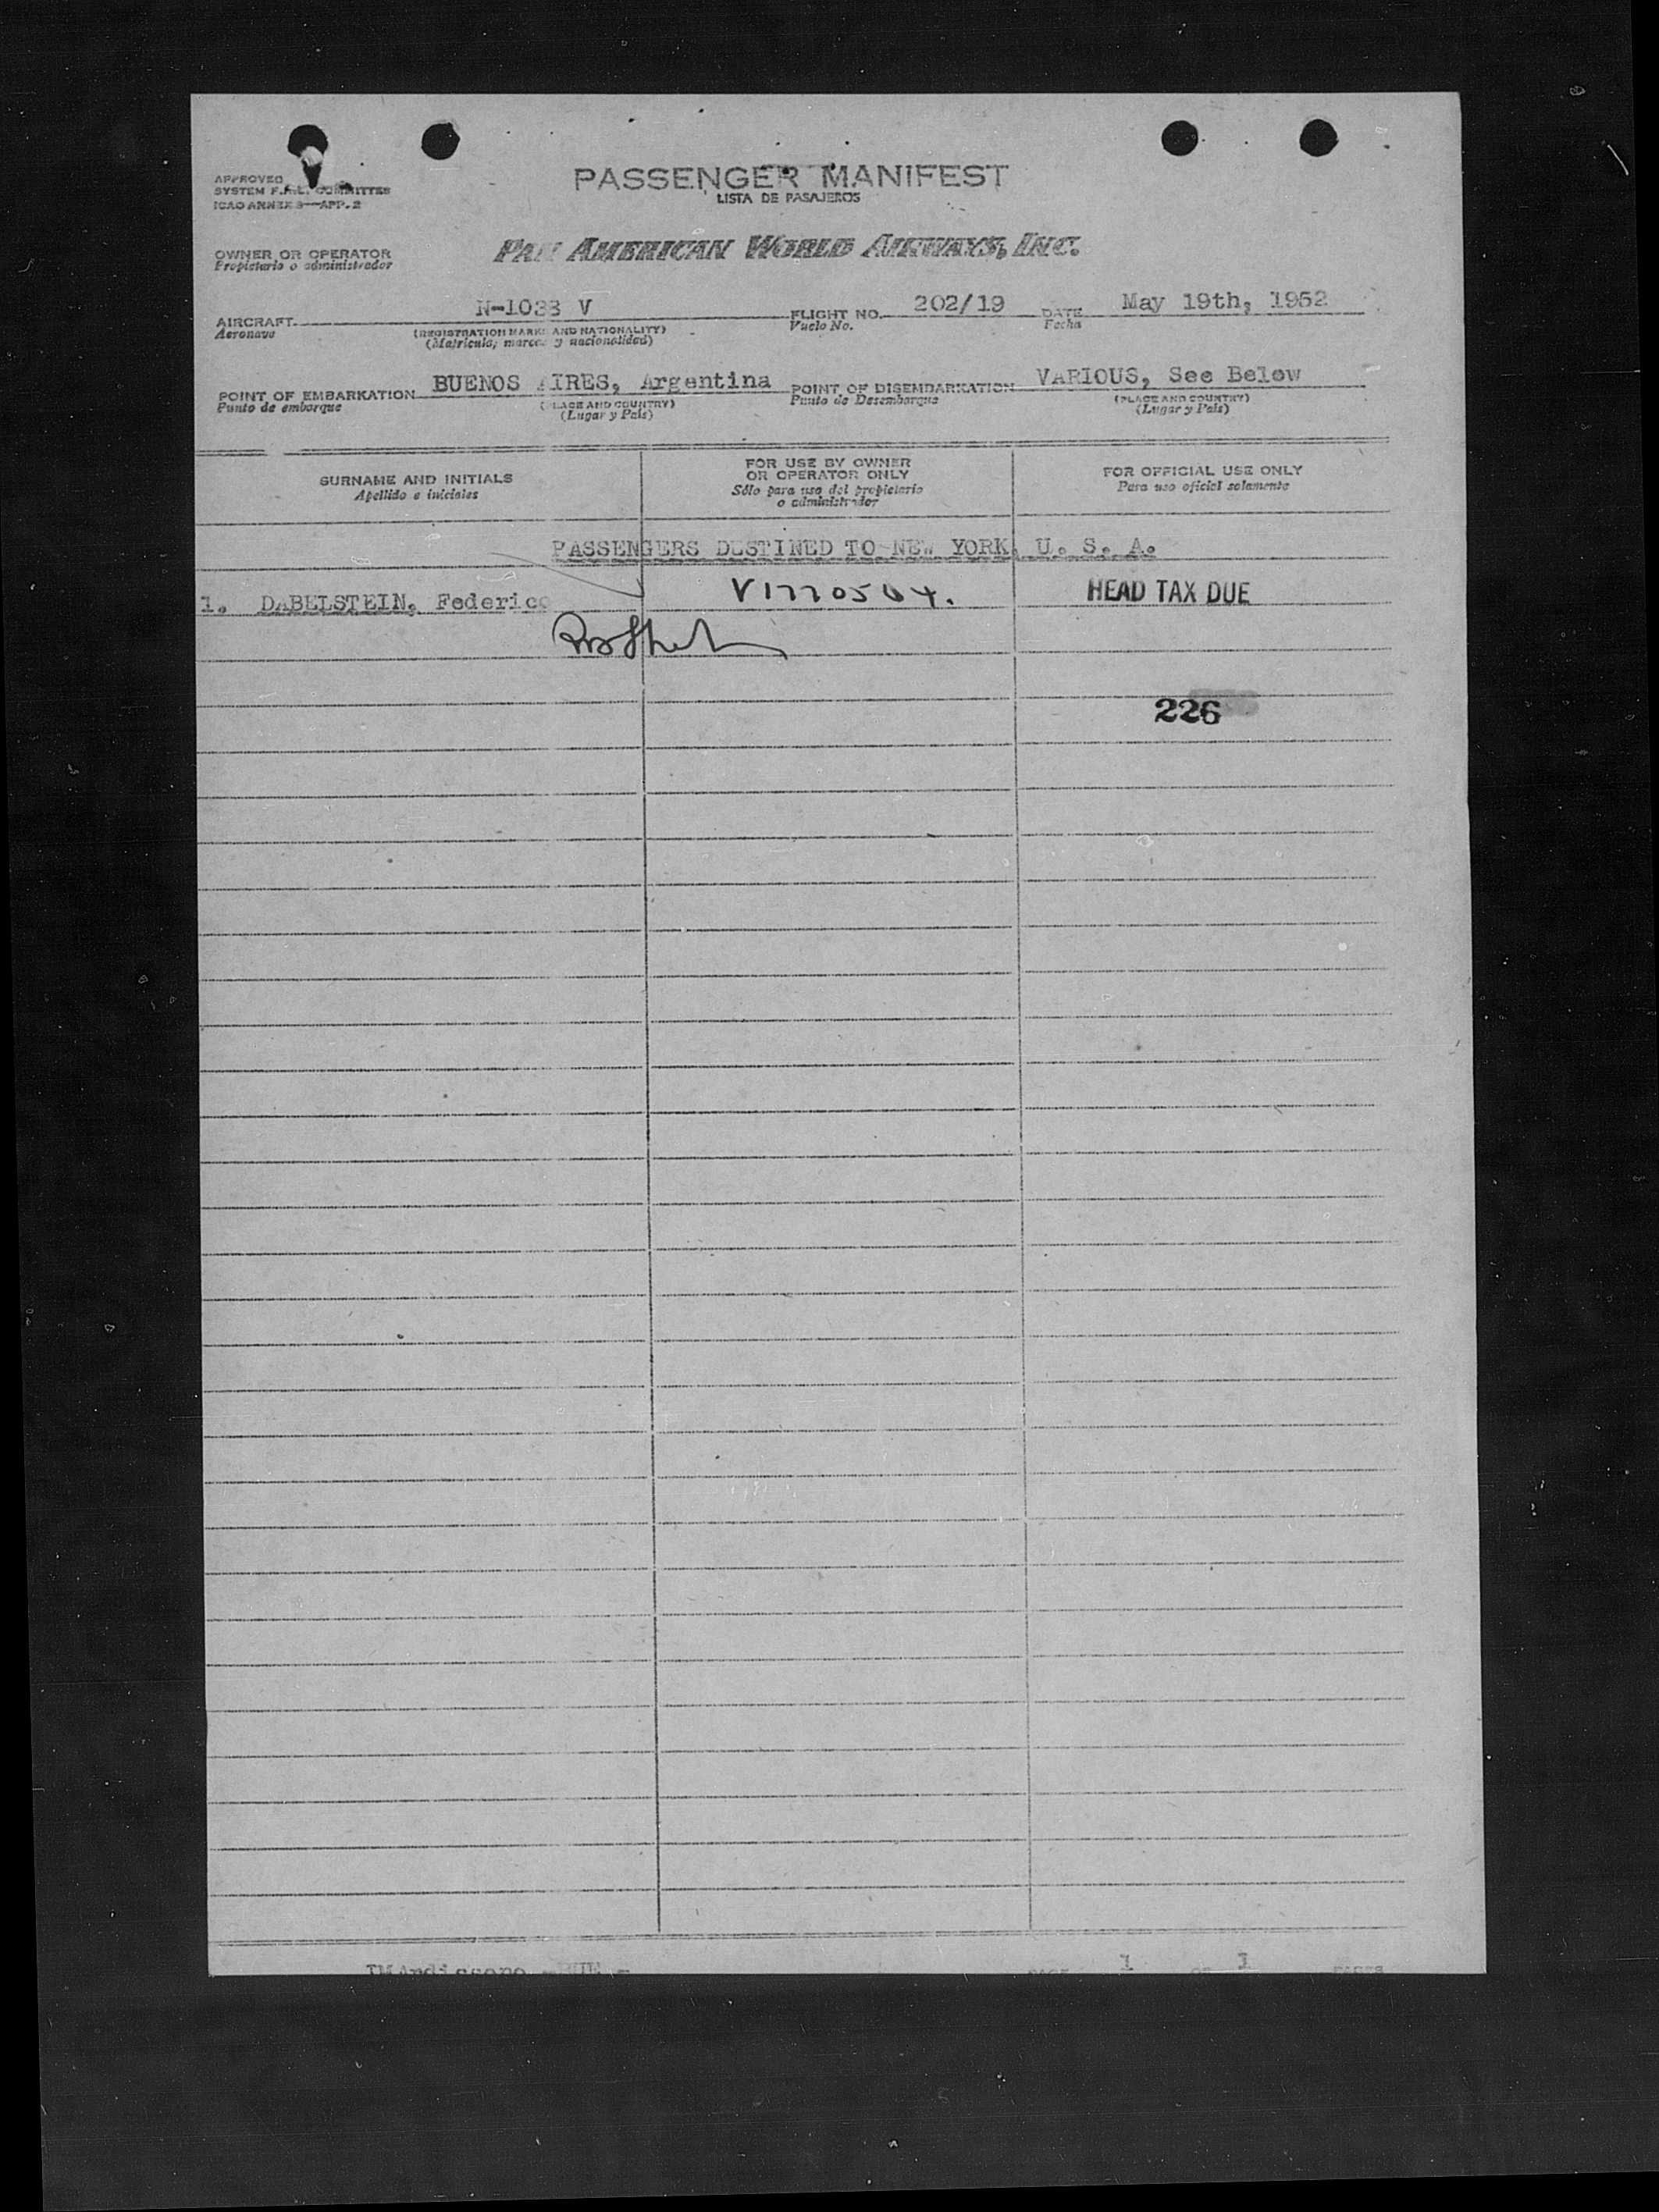 APPROVED
SYSTEM F.A.L. COMMITTEE
ICAO ANNEX 9—APP. 2
PASSENGER MANIFEST
LISTA DE PASAJEROS
OWNER OR OPERATOR
Propietario o administrador
PAN AMERICAN WORLD AIRWAYS, INC.
AIRCRAFT N-1033 V FLIGHT NO. 202/19 DATE May 19th, 1952
Aeronave (REGISTRATION MARKS AND NATIONALITY) Vuelo No. Fecha
(Matrícula, marcas y nacionalidad)
POINT OF EMBARKATION BUENOS AIRES, Argentina POINT OF DISEMBARKATION VARIOUS, See Below
Punto de embarque (PLACE AND COUNTRY) Punto de Desembarque (PLACE AND COUNTRY)
(Lugar y País) (Lugar y País)
SURNAME AND INITIALS
Apellido e iniciales
FOR USE BY OWNER
OR OPERATOR ONLY
Sólo para uso del propietario
o administrador
FOR OFFICIAL USE ONLY
Para uso oficial solamente
PASSENGERS DESTINED TO NEW YORK, U. S. A.
1. DABELSTEIN, Federico V1770504. HEAD TAX DUE
226
PAGE 1 OF 1 PAGES